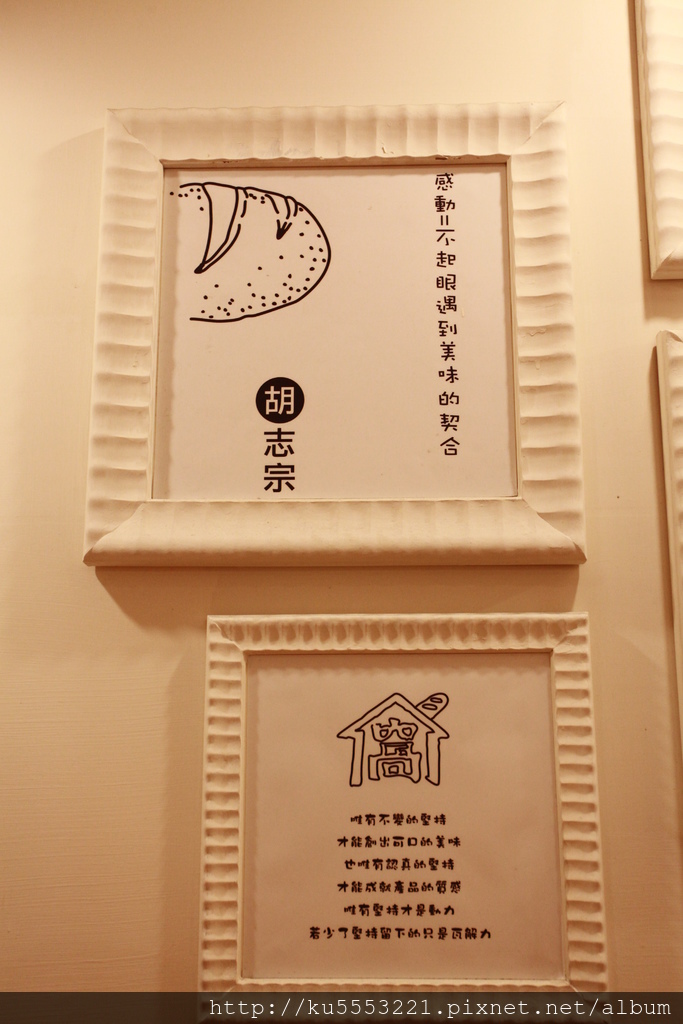 感動=不起眼遇到美味的契合
胡志宗
窩
唯有不變的堅持
才能創出可口的美味
也唯有認真的堅持
才能成就產品的質感
唯有堅持才是動力
若少了堅持留下的只是瓦解力
http://ku5553221.pixnet.net/album